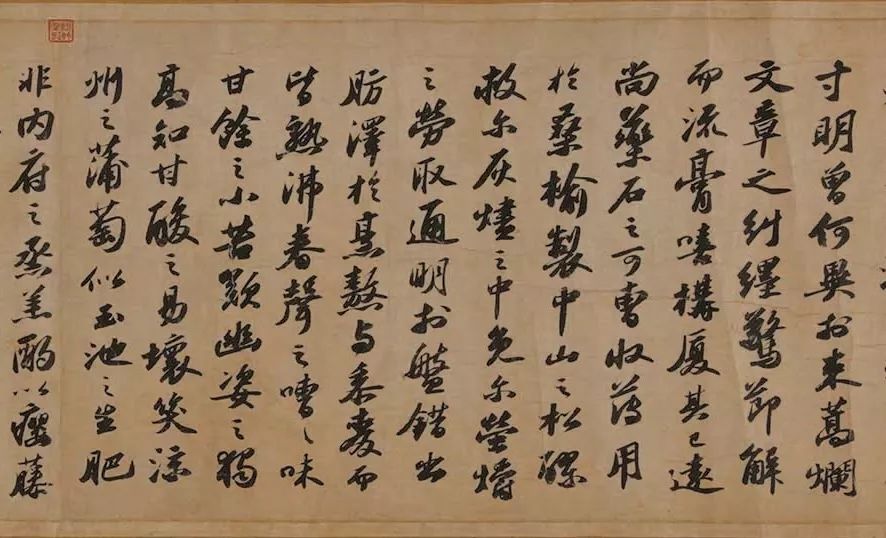 寸明曾何異於束蒿爛
文章之糾纆驚節解
而流膏嘻構廈其已遠
尚藥石之可曹收薄用
於桑榆製中山之松醪
救尔灰燼之中免尔螢爝
之勞取通明於盤錯出
肪澤於烹熬与黍麥而
皆熟沸舂聲之嘈〻味
甘餘之小苦歎幽姿之獨
高知甘酸之易壞笑涼
州之蒲萄似玉池之生肥
非內府之烝羔酌以癭藤